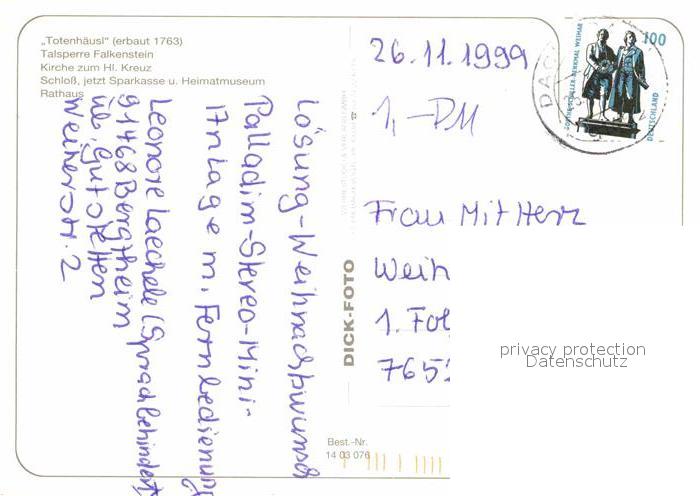 „Totenhäusl" (erbaut 1763)
Talsperre Falkenstein
Kirche zum Hl. Kreuz
Schloß, jetzt Sparkasse u. Heimatmuseum
Rathaus
Lösung-Weihnachtswunsch
Palladim-Stereo-Mini-
Anlage m. Fernbedienung
Leonore Laechele (Sprachbehindert)
91468 Bergtheim
üb. Gutstetten
Weiherstr. 2
DICK-FOTO
Best.-Nr.
14 03 076
26.11.1999
1,-DM
Frau Mit Herz
Weih
1. Fol
765
100
GOETHE-SCHILLER-DENKMAL WEIMAR
DEUTSCHLAND
privacy protection
Datenschutz